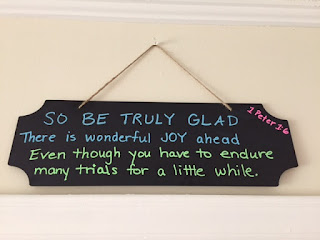 SO BE TRULY GLAD
1 Peter 1:6
There is wonderful JOY ahead
Even though you have to endure
many trials for a little while.